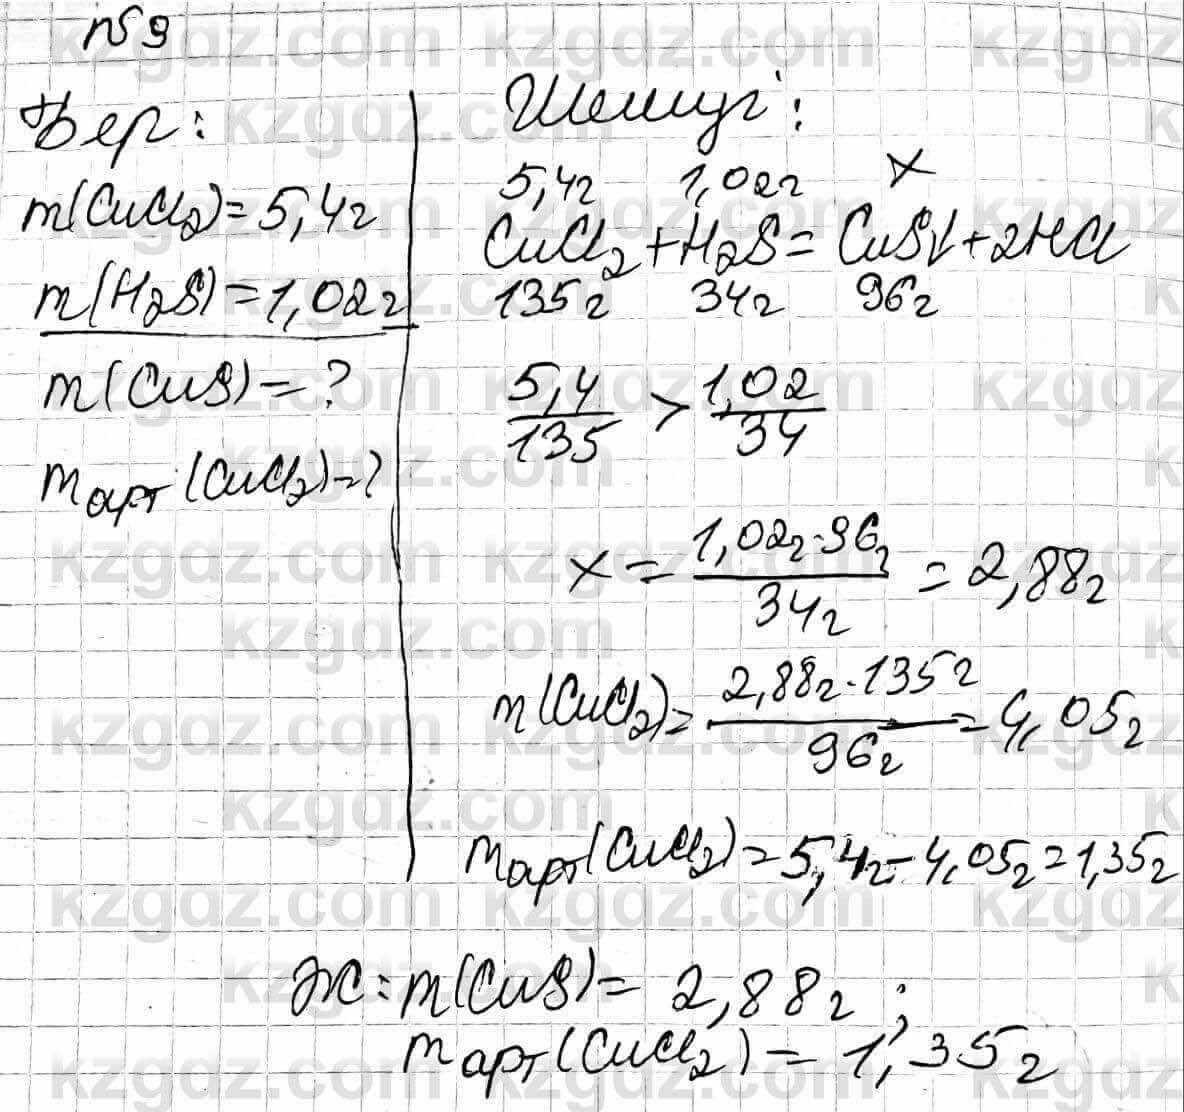 №9
Бер:
m(CuCl₂)=5,4г
m(H₂S)=1,02г
m(CuS)=?
mарт(CuCl₂)=?
Шешуі:
5,4г 1,02г x
CuCl₂+H₂S=CuS↓+2HCl
135г 34г 96г
5,4/135 > 1,02/34
x = 1,02г·96г/34г = 2,88г
m(CuCl₂)= 2,88г·135г/96г =4,05г
mарт(CuCl₂)=5,4г-4,05г=1,35г
Ж: m(CuS)= 2,88г ;
mарт(CuCl₂)= 1,35г
kzgdz.com